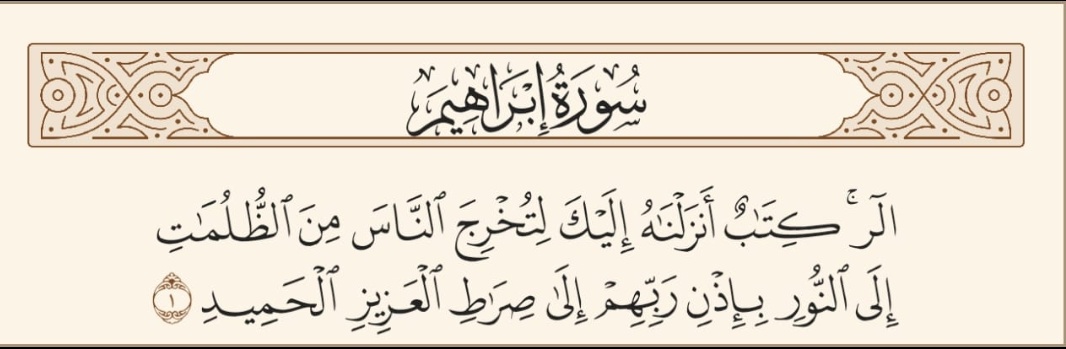 سُورَةُ إِبْرَاهِيمَ
الٓر ۚ كِتَـٰبٌ أَنزَلْنَـٰهُ إِلَيْكَ لِتُخْرِجَ ٱلنَّاسَ مِنَ ٱلظُّلُمَـٰتِ
إِلَى ٱلنُّورِ بِإِذْنِ رَبِّهِمْ إِلَىٰ صِرَٰطِ ٱلْعَزِيزِ ٱلْحَمِيدِ ١